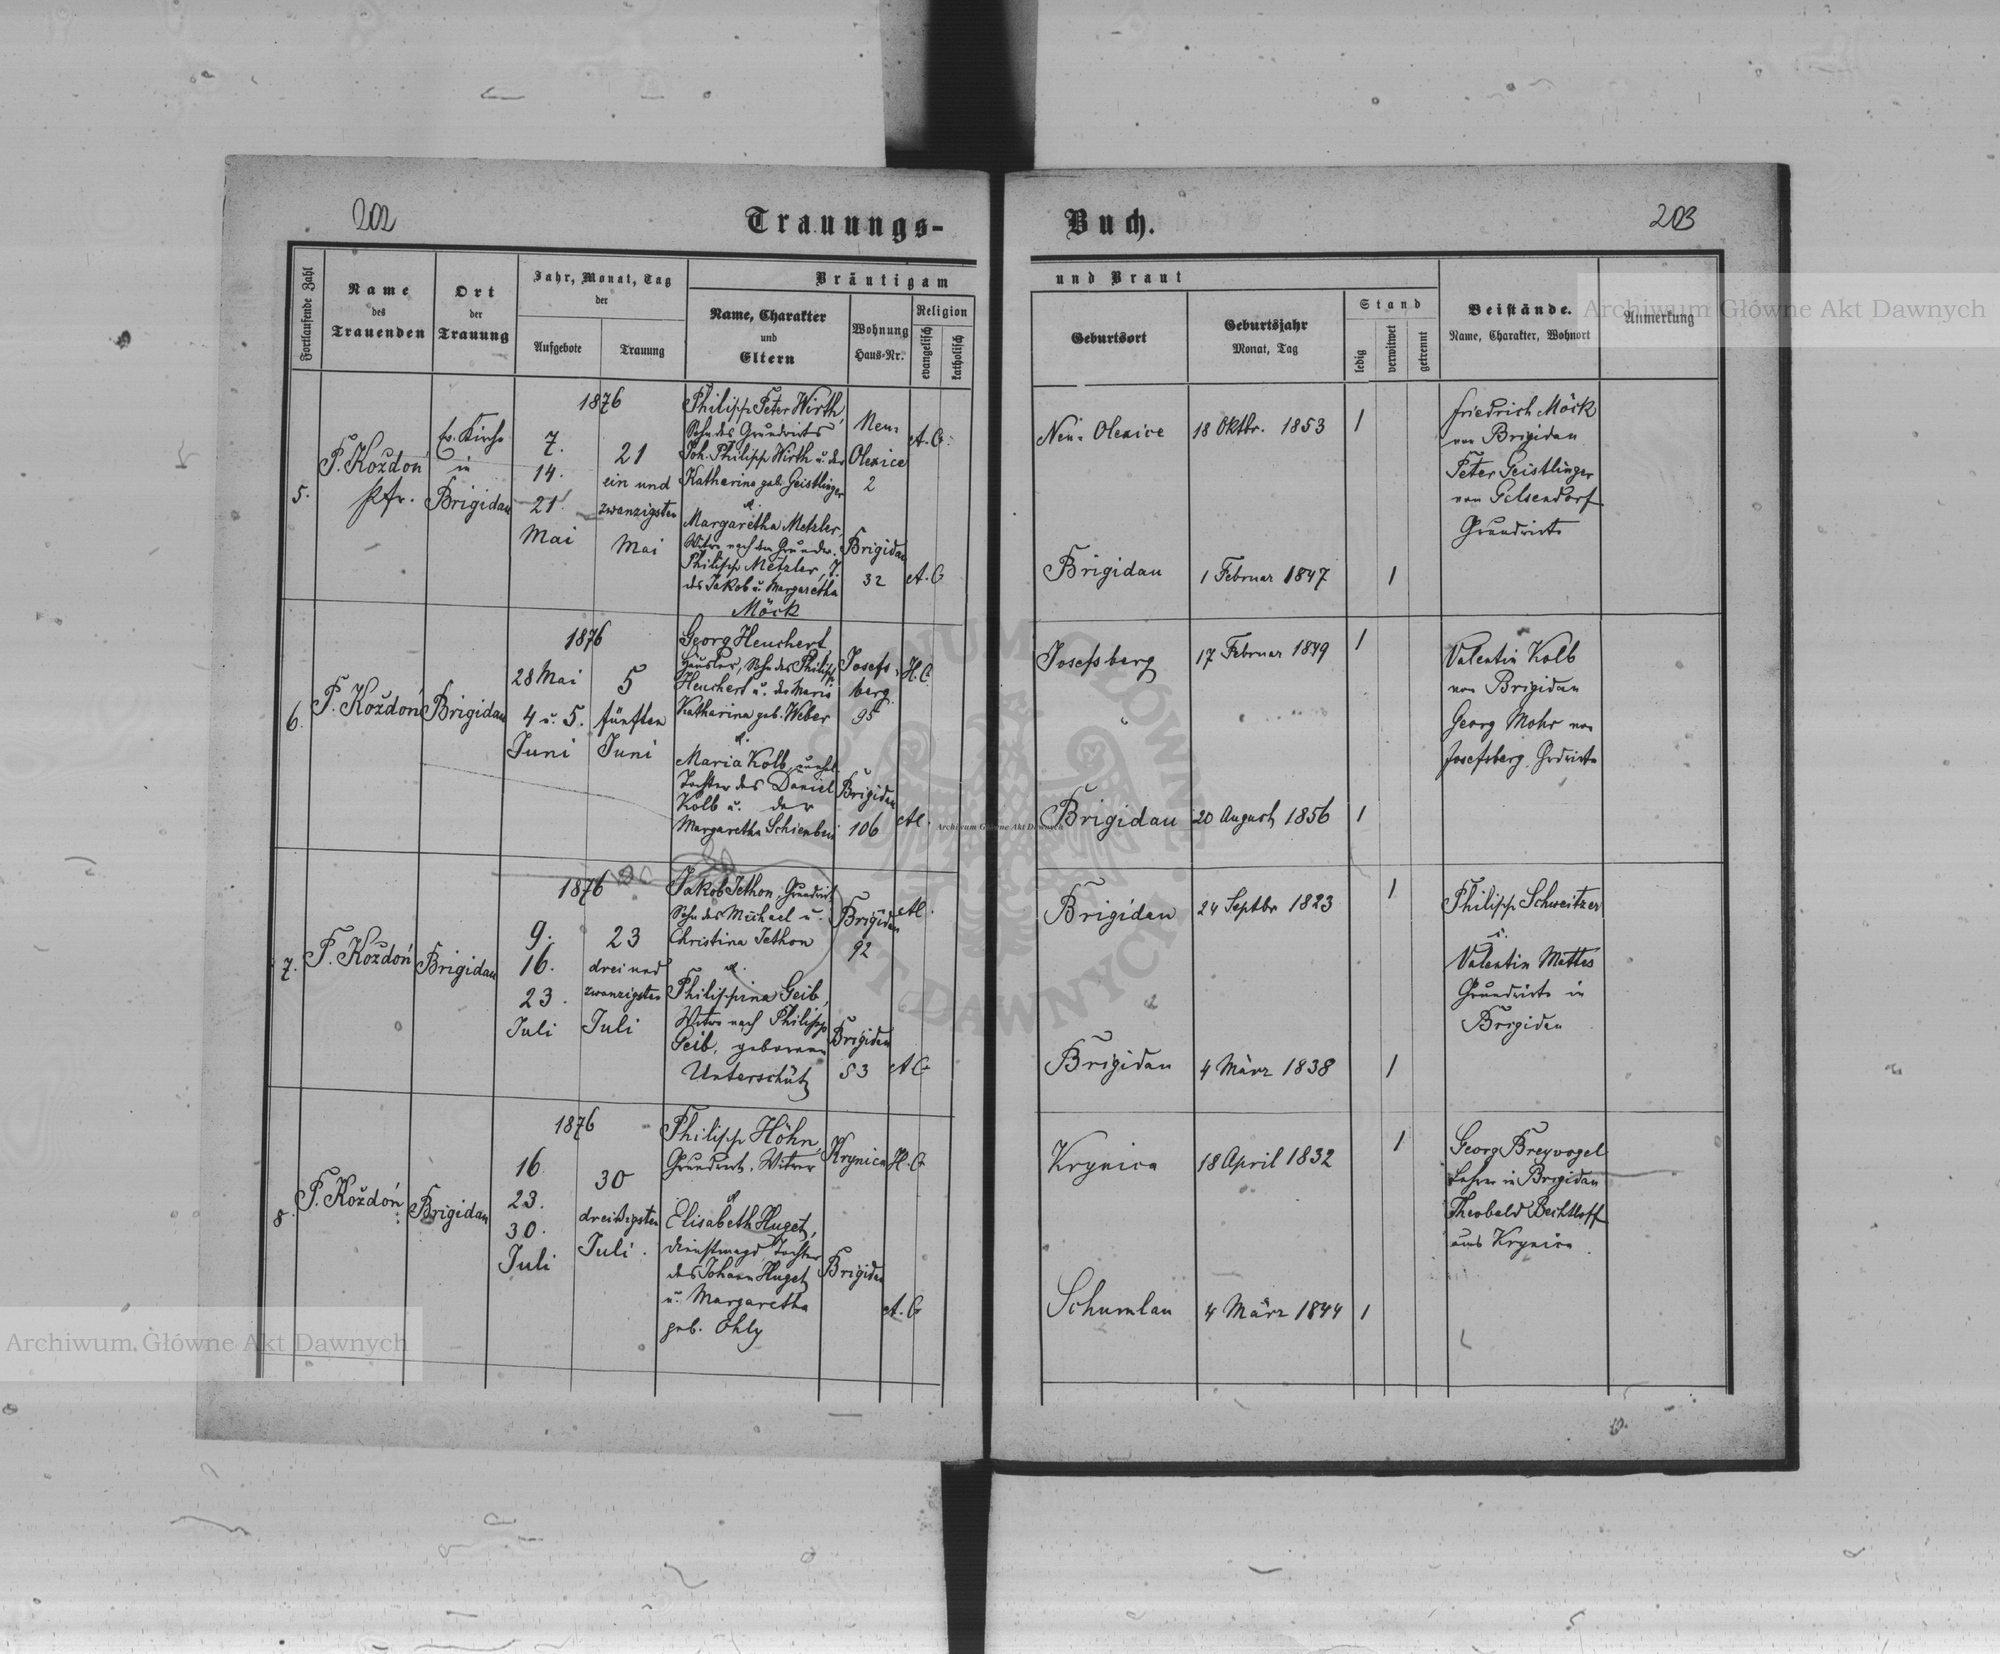 202
Trauungs-
Buch.
203
Fortlaufende Zahl
Name
des
Trauenden
Ort
der
Trauung
Jahr, Monat, Tag
der
Aufgebote
Trauung
Bräutigam
Name, Charakter
und
Eltern
Wohnung
Haus-Nr.
Religion
evangelisch
katholisch
und Braut
Geburtsort
Geburtsjahr
Monat, Tag
Stand
ledig
verwitwet
getrennt
Beistände.
Name, Charakter, Wohnort
Anmerkung
5.
P. Koždoń
Pfr.
Ev. Kirche
in
Brigidau
1876
7.
14.
21.
Mai
21
ein und
zwanzigsten
Mai
Philipp Peter Wirth,
Sohn des Grundwirts
Joh. Philipp Wirth u. der
Katharina geb. Geistlinger
u.
Margaretha Metzler,
Witwe nach dem Grundw.
Philipp Metzler, T.
des Jakob u. Margaretha
Möck
Neu-
Olexice
2
Brigidau
32
A. C.
A. C
Neu-Olexice
18 Oktbr. 1853
1
Brigidau
1 Februar 1847
1
Friedrich Möck
von Brigidau
Peter Geistlinger
von Gelsendorf
Grundwirte
6.
P. Koždoń
Brigidau
1876
28 Mai
4 u. 5.
Juni
5
fünften
Juni
Georg Heuchert,
Häusler, Sohn des Philipp
Heuchert u. der Maria
Katharina geb. Weber
u.
Maria Kolb, unehl.
Tochter des Daniel
Kolb u. der
Margaretha
Josefs-
berg
95
Brigidau
106
H. C.
Josefsberg
17 Februar 1849
1
Brigidau
20 August 1856
1
Valentin Kolb
von Brigidau
Georg Mohr von
Josefsberg, Grdwirte
7.
P. Koždoń
Brigidau
1876
9.
16.
23.
Juli
23
drei und
zwanzigsten
Juli
Jakob Jethon, Grundwirt
Sohn des Michael u.
Christina Jethon
u.
Philippina Geib,
Witwe nach Philipp
Geib, geborene
Unterschütz
Brigidau
92
Brigidau
53
A C
Brigidau
24 Septbr 1823
1
Brigidau
4 März 1838
1
Philipp Schweitzer
u.
Valentin Mattes
Grundwirte in
Brigidau
8.
P. Koždoń
Brigidau
1876
16
23.
30.
Juli
30
dreißigsten
Juli.
Philipp Höhn,
Grundwirt, Witwer
u
Elisabeth Huget,
Dienstmagd Tochter
des Johann Huget
u. Margaretha
geb. Ohly
Krynica
Brigidau
H. C
A. C
Krynica
18 April 1832
1
Schumlau
4 März 1844
1
Georg Breyvogel
Lehrer in Brigidau
Theobald Bechtloff
aus Krynica.
Archiwum Główne Akt Dawnych
Archiwum Główne Akt Dawnych
Archiwum Główne Akt Dawnych